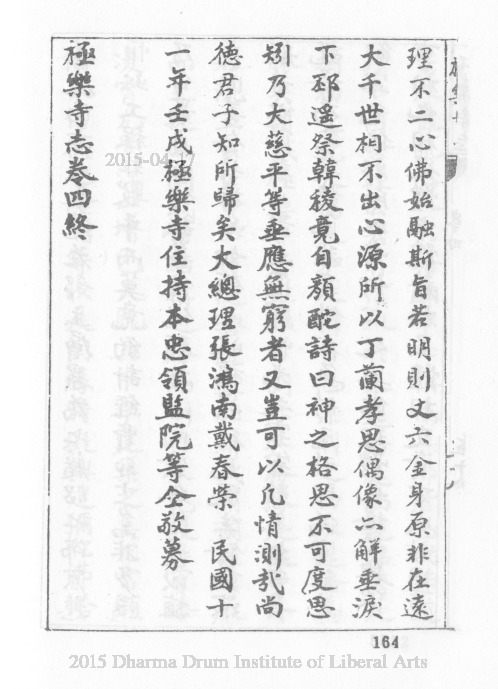 理不二心佛始融斯旨若明則丈六金身原非在遠
大千世相不出心源所以丁蘭孝思偶像亦解垂淚
下邳遥祭韓稜竟自顏酡詩曰神之格思不可度思
矧乃大慈平等垂應無窮者又豈可以凡情測哉尚
德君子知所歸矣大總理張鴻南戴春榮 民國十
一年壬戌極樂寺住持本忠領監院等仝敬募
極樂寺志卷四終
2015-04-17
164
2015 Dharma Drum Institute of Liberal Arts